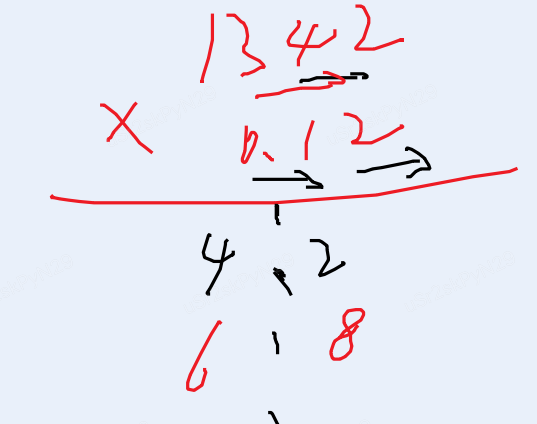 1342
× 0.12
4 2
6 8